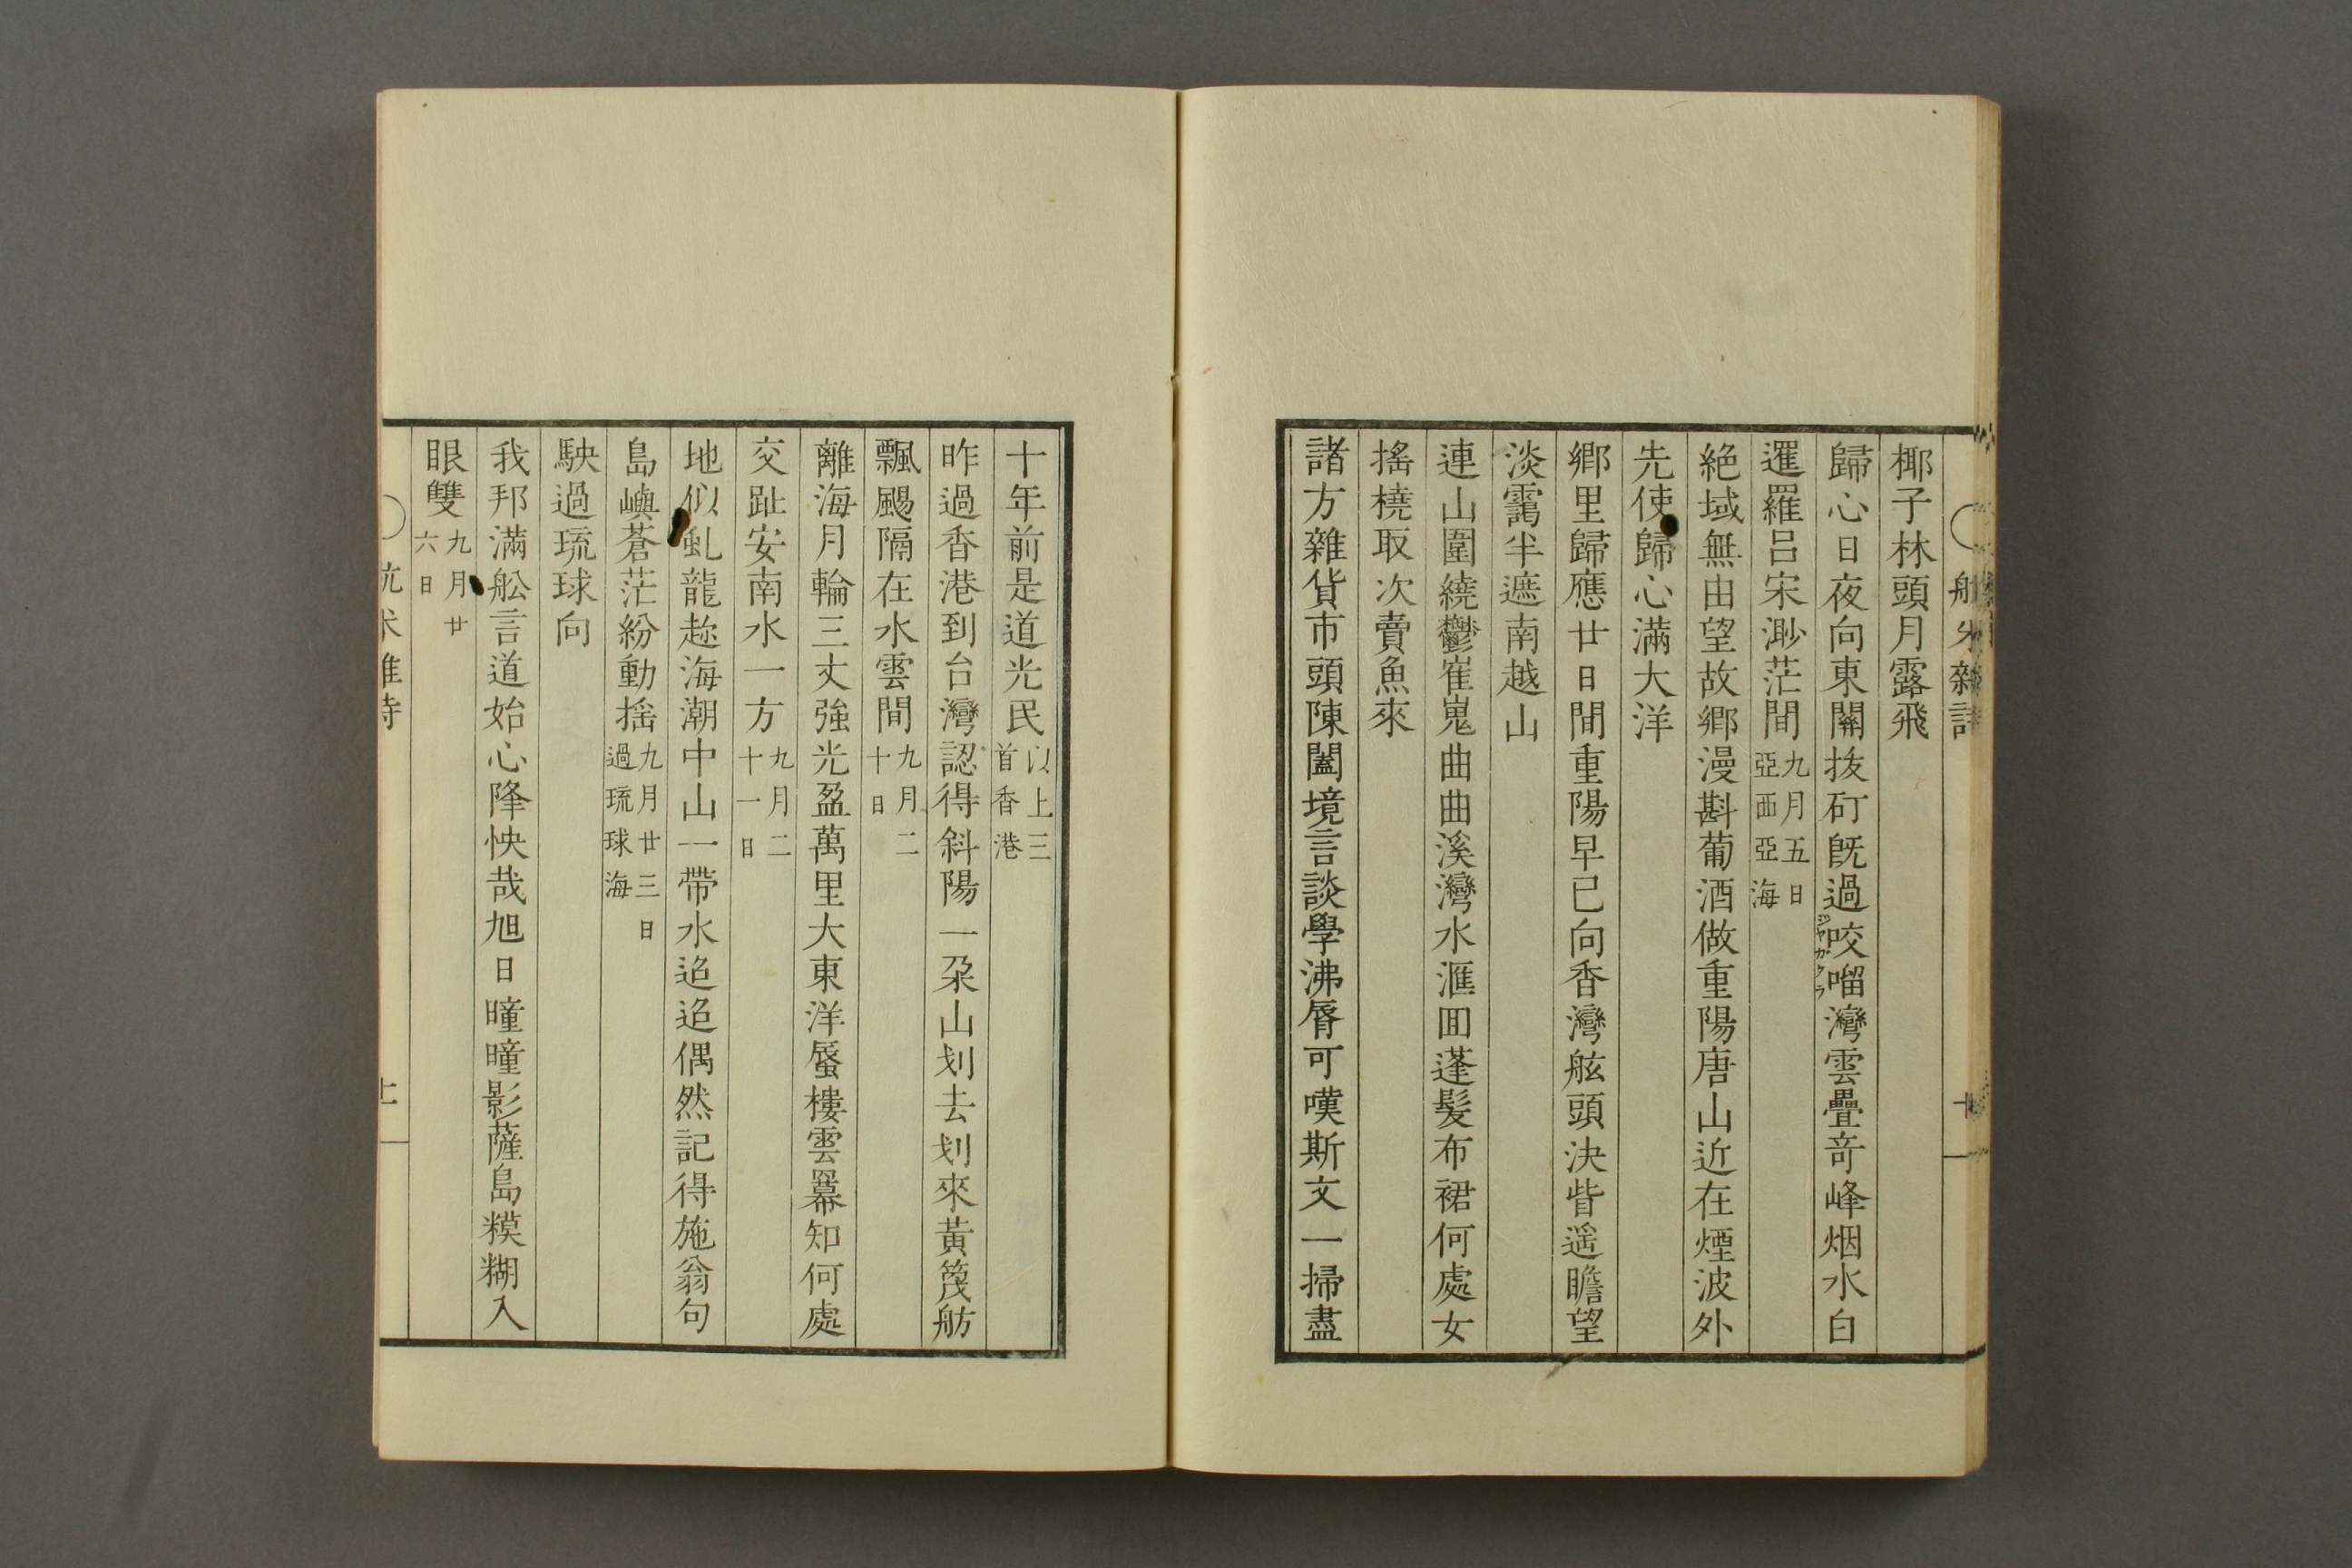 椰子林頭月露飛
歸心日夜向東關拔矴既過咬𠺕灣雲疊奇峰烟水白
ジヤガタラ
暹羅呂宋渺茫間九月五日
亞西亞海
絶域無由望故鄉漫斟葡酒做重陽唐山近在煙波外
先使歸心滿大洋
鄉里歸應廿日間重陽早已向香灣舷頭決眥遥瞻望
淡靄半遮南越山
連山圍繞鬱崔嵬曲曲溪灣水滙囬蓬髮布裙何處女
搖橈取次賣魚來
諸方雜貨市頭陳闔境言談學沸脣可嘆斯文一掃盡
十年前是道光民以上三
首香港
昨過香港到台灣認得斜陽一朶山划去划來黃篾舫
飄颺隔在水雲間九月二
十日
離海月輪三丈強光盈萬里大東洋蜃樓雲冪知何處
交趾安南水一方九月二
十一日
地似虬龍趂海潮中山一帶水迢迢偶然記得施翁句
島嶼蒼茫紛動揺九月廿三日
過琉球海
駚過琉球向
我邦滿舩言道始心降怏哉旭日曈曈影薩島糢糊入
眼雙九月廿
六日